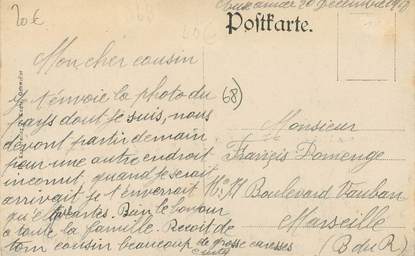 20€
décembre 1918
Postkarte.
Mon cher cousin
Je t'envoie la photo du
pays dont je suis, nous
devont partir demain
pour une autre endroit
inconnut, quand je serait
arrivait je t'enverrait
qu'elques cartes. Bien le bonjour
a toute la famille. Recoit de
ton cousin beaucoup de grosse caresses
68)
Monsieur
Français Domenge
Boulevard Vauban
Marseille
(B du R)